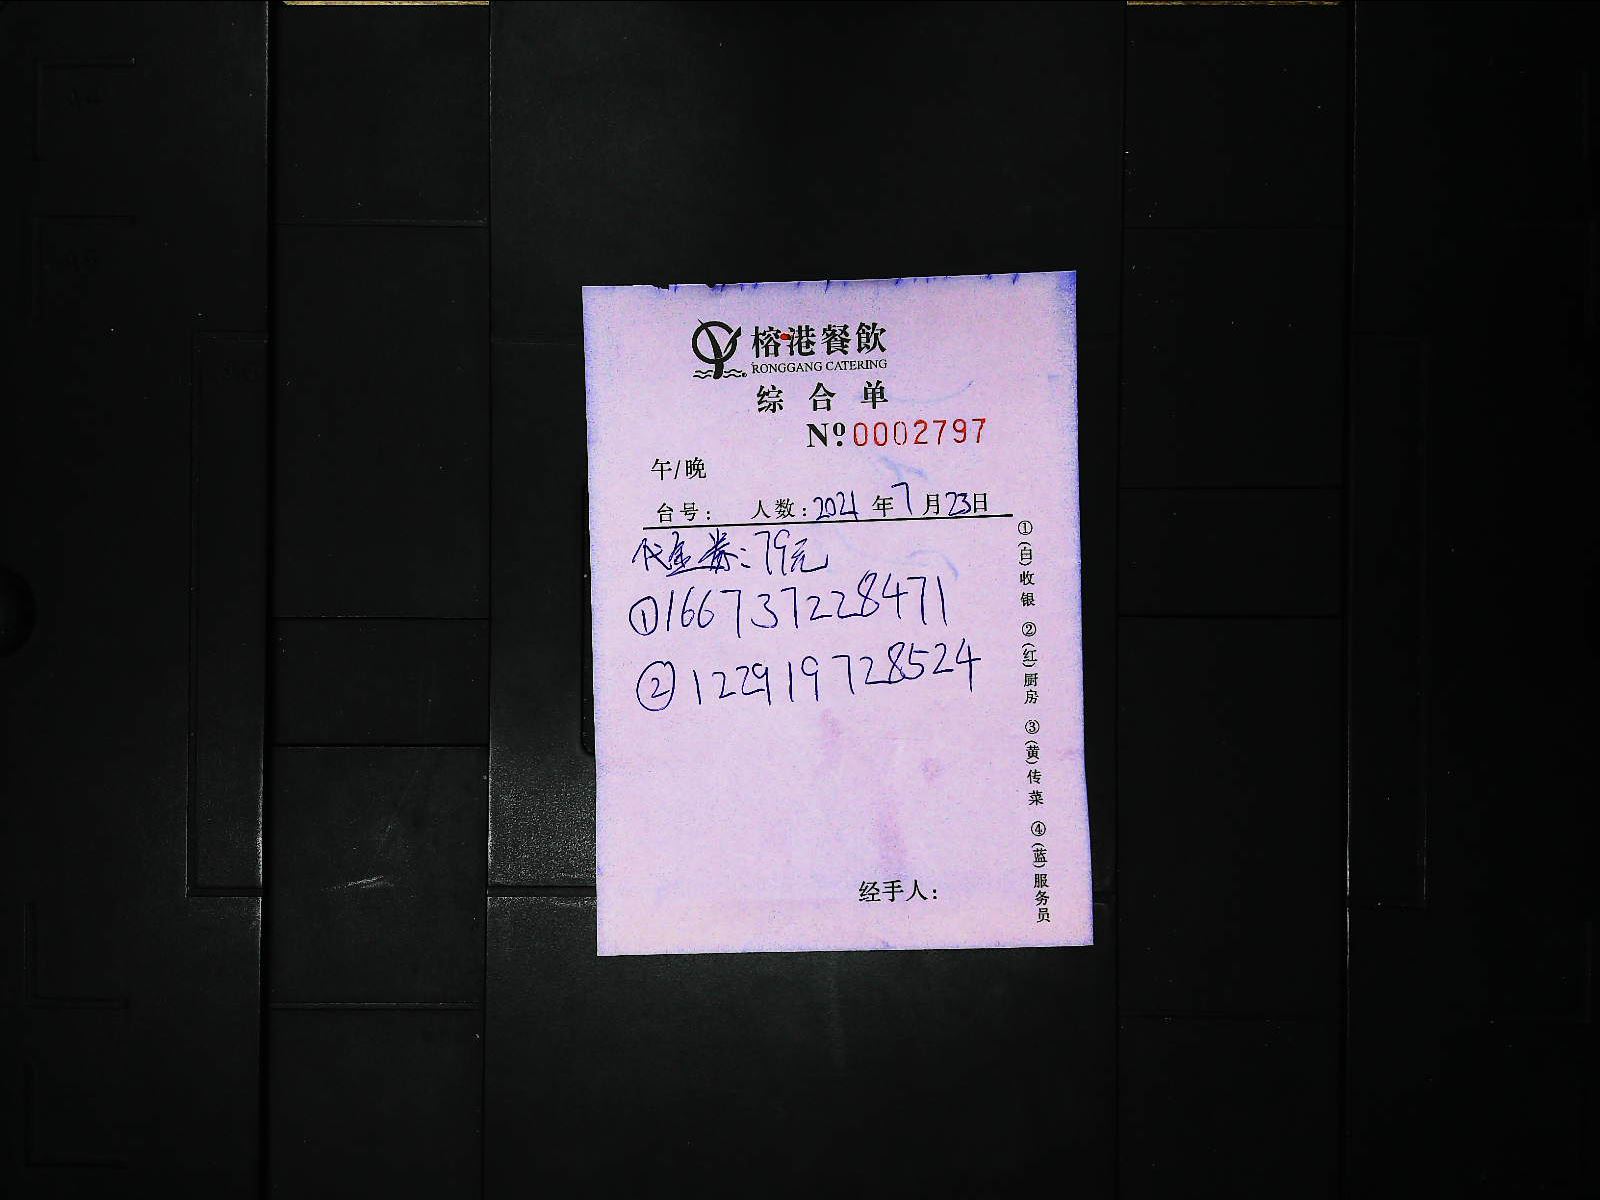 榕港餐飲
RONGGANG CATERING
综合单
Nº:0002797
午/晚
台号: 人数:2021年7月23日
代金券:79元
①166737228471
②122919728524
经手人:
①(白)收银 ②(红)厨房 ③(黄)传菜 ④(蓝)服务员